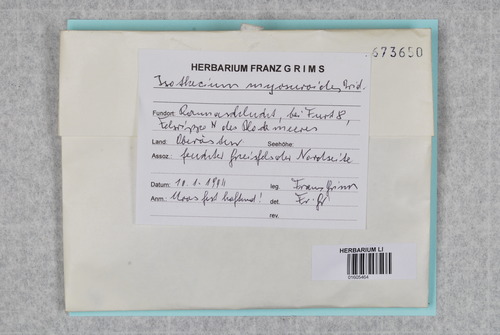 673650
HERBARIUM FRANZ G R I M S
Isothecium myosuroides Brid.
Fundort: Rannaschlucht, bei Furt 8,
Felsrippe N des Blockmeeres
Land: Oberösterr. Seehöhe:
Assoz.: feuchter Gneisfels der Nordseite
Datum: 10. 1. leg. Franz Grims
Anm.: Moos fest haftend! det. Fr. Gr
rev.
HERBARIUM LI
01605464